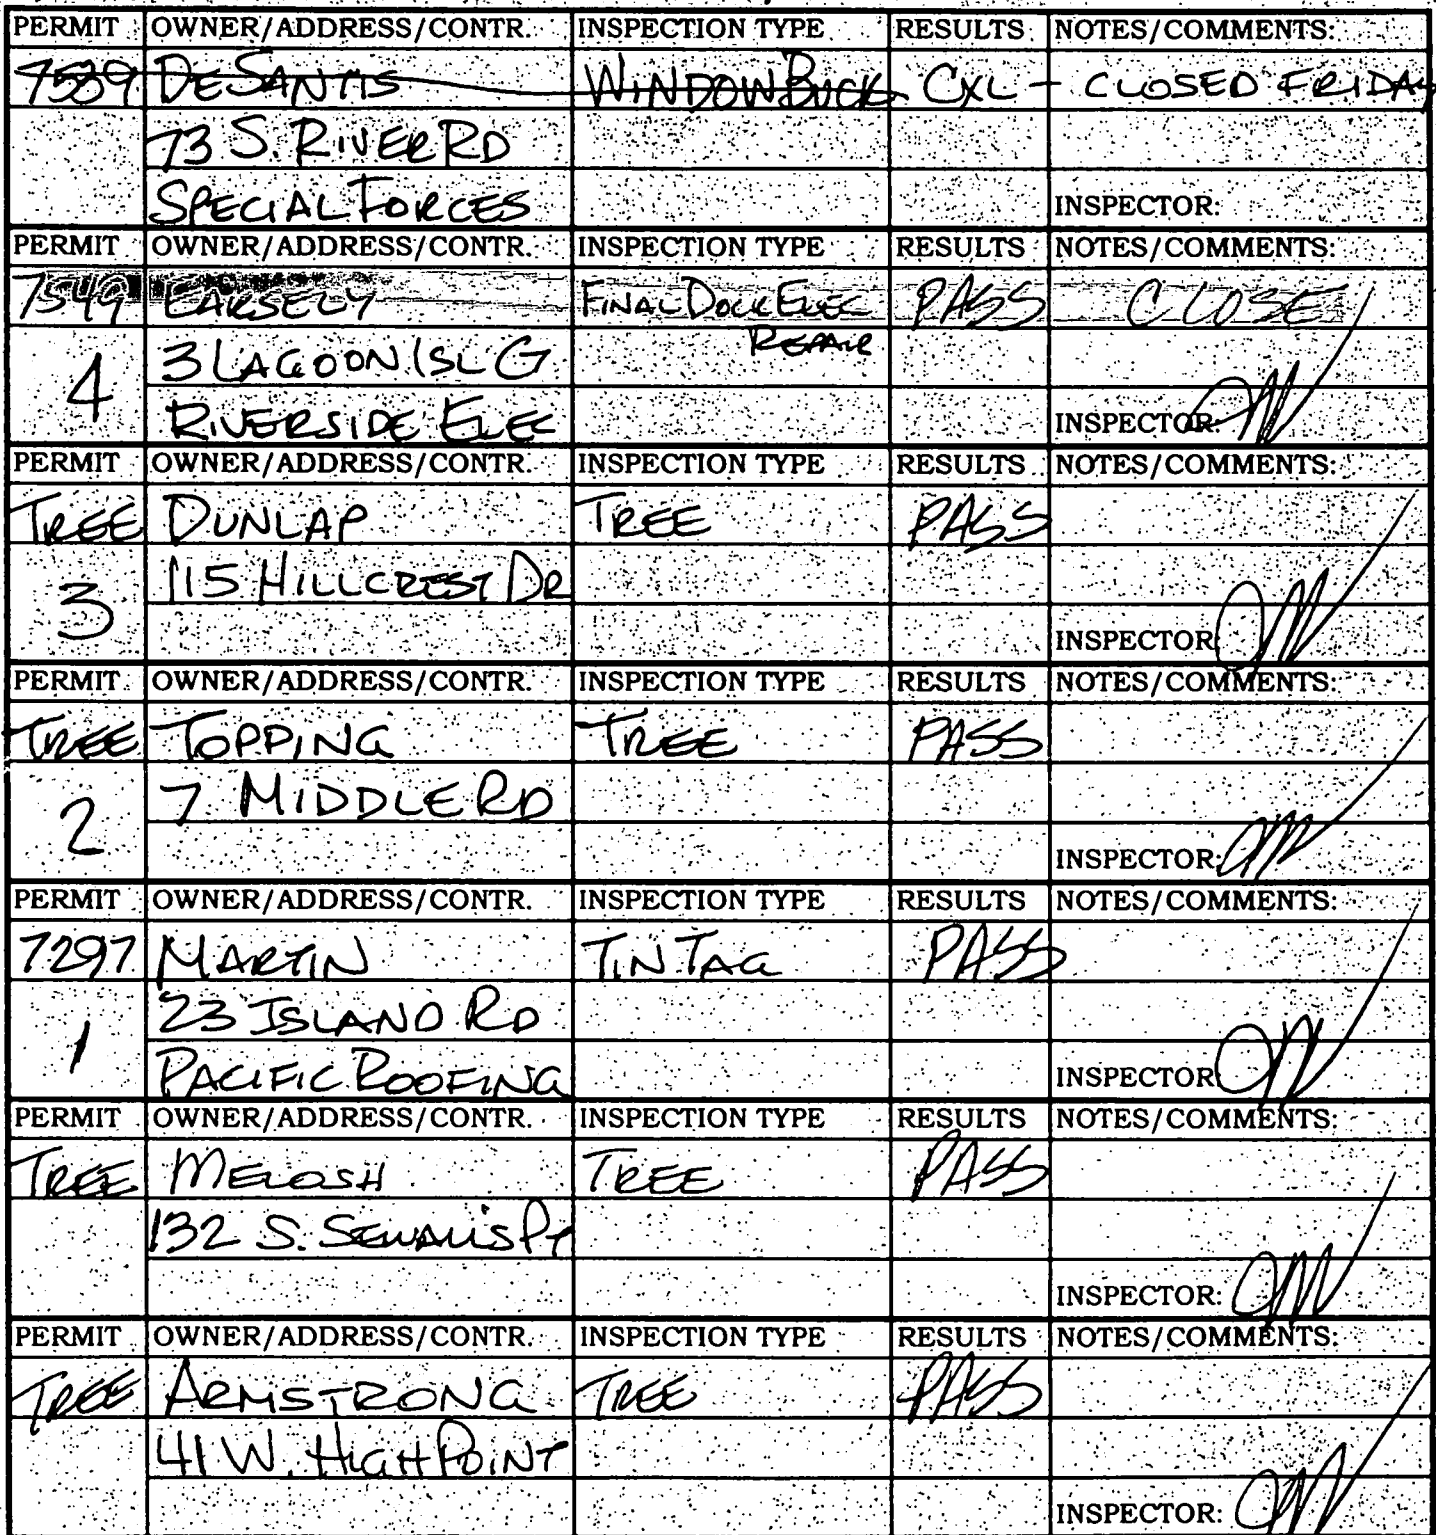 PERMIT OWNER/ADDRESS/CONTR. INSPECTION TYPE RESULTS NOTES/COMMENTS:
7539 DESANTIS WINDOWBUCK CXL - CLOSED FRIDAY
73 S. RIVER RD
SPECIAL FORCES INSPECTOR:
PERMIT OWNER/ADDRESS/CONTR. INSPECTION TYPE RESULTS NOTES/COMMENTS:
7549 EARSELY FINAL DOCK ELEC PASS CLOSE
REPAIR
4 3 LAGOON ISL G
RIVERSIDE ELEC INSPECTOR:
PERMIT OWNER/ADDRESS/CONTR. INSPECTION TYPE RESULTS NOTES/COMMENTS:
TREE DUNLAP TREE PASS
3 115 HILLCREST DR
INSPECTOR:
PERMIT OWNER/ADDRESS/CONTR. INSPECTION TYPE RESULTS NOTES/COMMENTS:
TREE TOPPING TREE PASS
2 7 MIDDLE RD
INSPECTOR:
PERMIT OWNER/ADDRESS/CONTR. INSPECTION TYPE RESULTS NOTES/COMMENTS:
7297 MARTIN TIN TAG PASS
1 23 ISLAND RD
PACIFIC ROOFING INSPECTOR:
PERMIT OWNER/ADDRESS/CONTR. INSPECTION TYPE RESULTS NOTES/COMMENTS:
TREE MELOSH TREE PASS
132 S. SEWALL'S PT
INSPECTOR:
PERMIT OWNER/ADDRESS/CONTR. INSPECTION TYPE RESULTS NOTES/COMMENTS:
TREE ARMSTRONG TREE PASS
41 W. HIGH POINT
INSPECTOR: